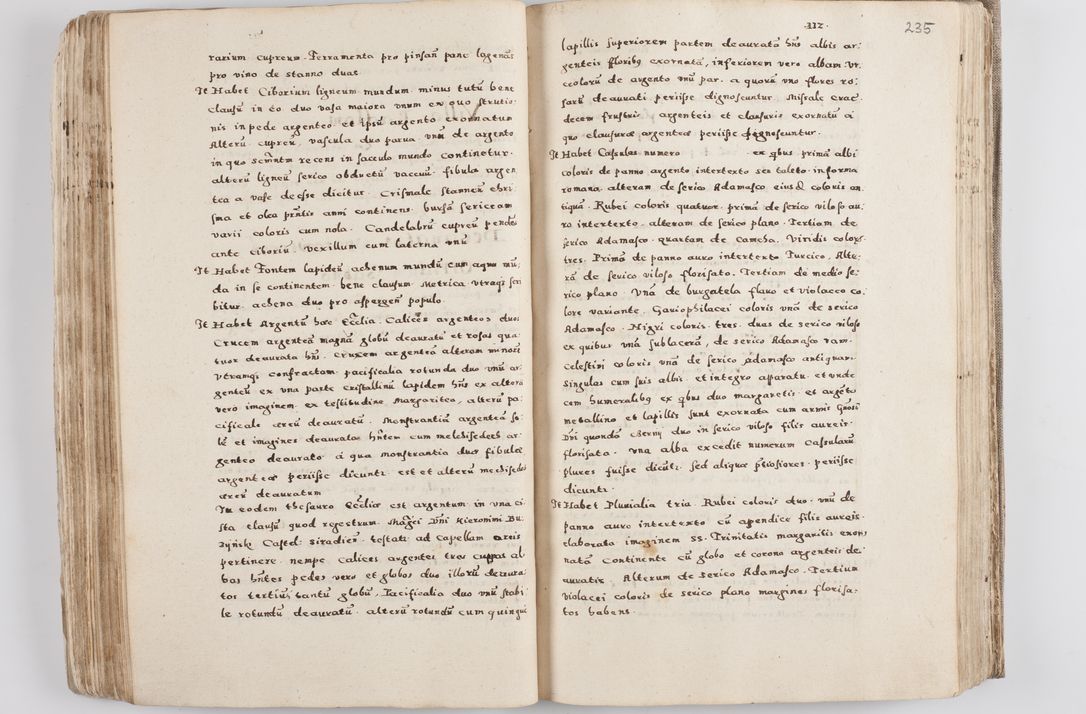 rarium cupreum. Ferramenta pro pinsan̄ pane lagenas
pro vino de stanno duas
It Habet Ciborium ligneum mundum minus tutū bene
clausū in eo duo vasa maiora vnum ex ouo strutio
nis in pede argenteo et ipsū argento exornatum
Alterū cupreū, vascula duo parua vnū de argento
in quo Sacm̄tm recens in sacculo mundo continetur.
alterū ligneū serico obductū vacuum. fibula argen
tea a vase deesse dicitur. Crismale stanneū chri
sma et olea prn̄tis anni continens. bursā sericeam
varii coloris cum nola. Candelabrū cupreū pendēs
ante ciboriū vexillum cum laterna vnū
It Habet Fontem lapideū ahenum mundū cum aqua mū
da in se continentem bene clausum Metrica vtraq scri
bitur. ahena duo pro aspergen̄ populo.
It Habet Argentū haec Ecclīa. Calices argenteos duos
Crucem argenteā magnā globū deauratū et rosas qua
tuor deaurata hn̄s. Crucem argenteā alteram minorē
vtramq confractam. pacificalia rotunda duo vnū ar
genteū ex vna parte cristallinū lapidem hn̄s ex altera
vero imaginem ex testitudine Margaritea, alterū pa
cificale aereū deauratū. Monstrantiā argenteā so
lē et imagines deauratas hn̄tem cum melchisedech ar
genteo deaurato a qua monstrantia duas fibulas
argenteas periisse dicunt. est et alterū mechisedec
aereū deauratum
In eodem thesauro Ecclīae est argentum in vna ci
sta clausū quod regestrum Mag̃ci Dn̄i Hieronimi Bu
zÿnskj Castel: Siradien̄ testatr ad Capellam Loreis
pertinere nempe calices argentei tres cuppas al
bas hn̄tes pedes vero et globos duo illorū deaura
tos tertiū tantū globū, Pacificalia duo vnū stabi
le rotundū deauratū. alterū rotundū cum quinque
112.
235
lapillis superiorem partem deauratā hn̄s albis ar
genteis floribq exornatā, inferiorem vero albam. Vr
ceolorū de argento vnū par. a quorū vno flores ro
sarū deaurati periisse dignoscuntur. Missale Crac.
decem frustris argenteis et clausuris exornatū a
quo clausuras argenteas periisse dignoscuntur.
It Habet Casulas numero ex qbus prima albi
coloris de panno argento intertexto seu taleto in forma
romana. alteram de serico Adamasco eiusd coloris an
tiquā. Rubei coloris quatuor. primā de serico viloso au
ro intertexto. alteram de serico plano. Tertiam de
serico Adamasco. quartam de Camcha. Viridis colors
tres. Primā de panno auro intertexto Turcico. Alte
rā de serico viloso florisato. Tertiam de medio se
rico plano. Vnā de burgatela flauo et violaceo co
lore variante. Gariophilacei coloris vnā de serico
Adamasco. Nigri coloris tres. duas de serico viloso
ex quibus vnā sublacerā, de serico Adamasco vam.
Celestini coloris vnā de serico Adamasco antiquam.
Singulas cum suis albis. et integro apparatu. et vnde
cem humeralibq ex qbus duo margaretis et argēto
metallino et lapillis sunt exornata cum armis Gn̄osi
Dn̄i quondā Czernÿ duo in serico viloso filis aureis
florisata. vna alba excedit numerum Casularū
plures fuisse dicūt. sed aliquas ptiosiores periisse
dicunt.
It Habet Pluuialia tria. Rubei coloris duo. vnū de
panno auro intertexto cū apendice filis aureis
elaborata imaginem SS. Trinitatis margaritis exor
natā Continente cū globo et corona argenteis de
auratis. Alterum de serico Adamasco. Tertium
violacei coloris de serico plano margines florisa
tos habens.